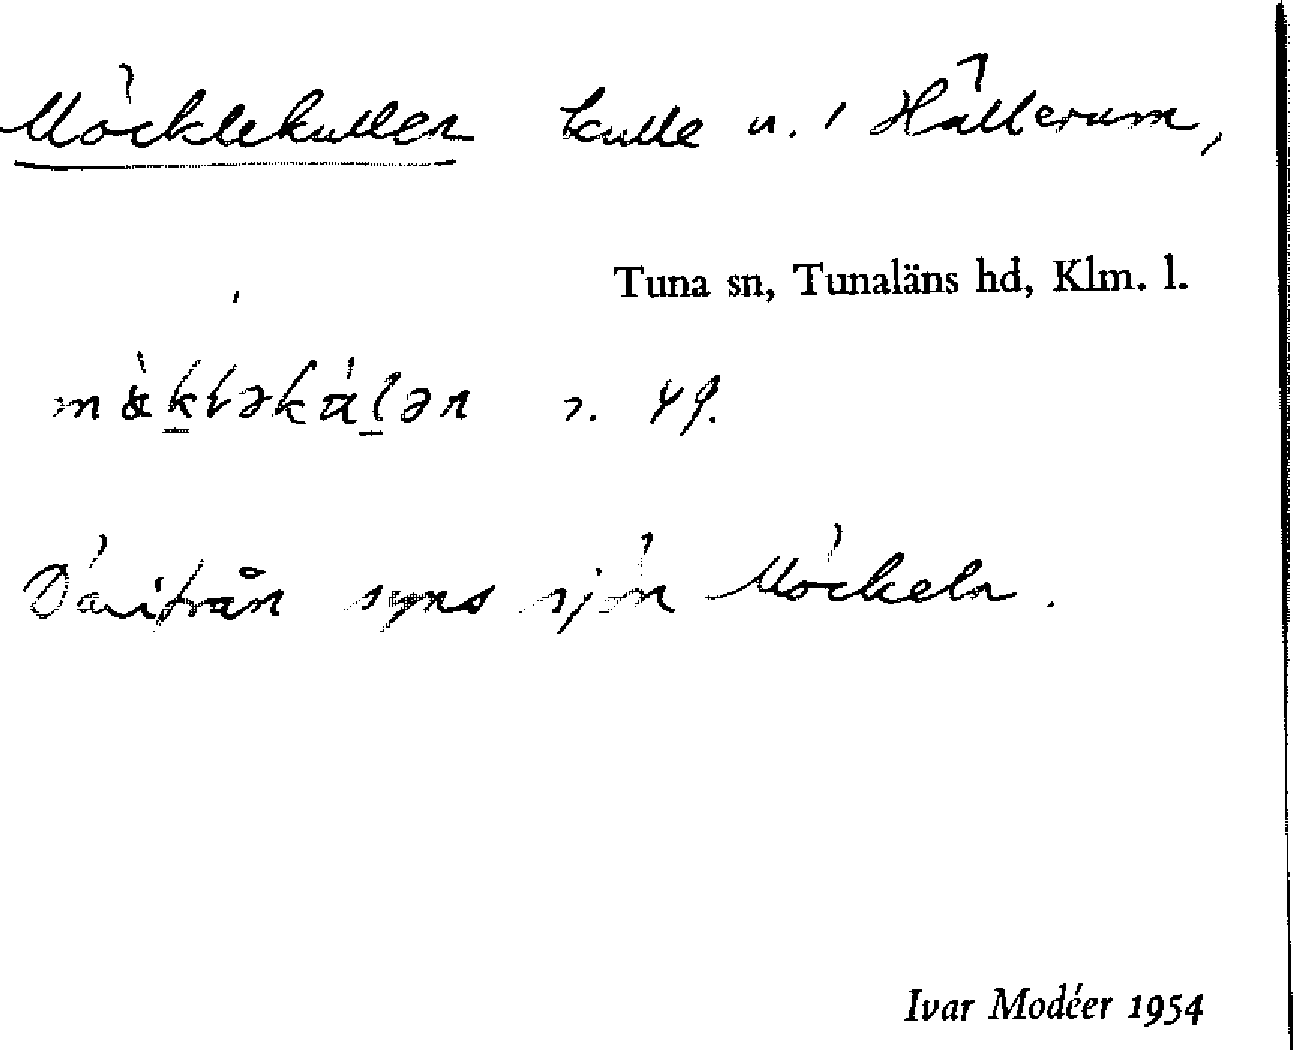 Möcklekullen kulle n. i Hällerum,
Tuna sn, Tunaläns hd, Klm. l.
49.
Därifrån syns sjön Möckeln.
Ivar Modéer 1954